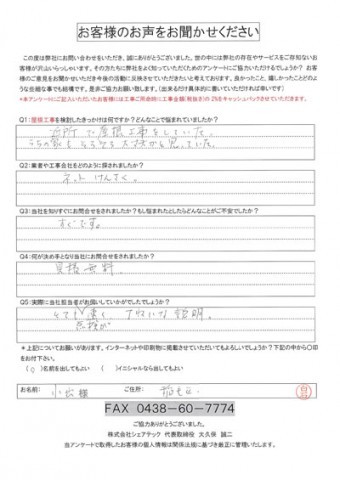 お客様のお声をお聞かせください
この度は弊社にお問い合わせをいただき、誠にありがとうございました。世の中には弊社の存在やサービスをご存知ないお
客様が沢山いらっしゃいます。その方たちに弊社をよく知っていただくためのアンケートにご協力いただけるでしょうか？ お客
様のご意見をお聞かせいただき今後の活動に反映させていただきたいと考えております。良かったこと、嬉しかったことどのよ
うな些細な事でも結構です、是非ご協力お願い致します。（出来るだけ具体的に書いていただければ幸いです）
*本アンケートにご記入いただいたお客様には工事ご用命時に工事金額（税抜き）の2%をキャッシュバックさせていただきます。
Q1：屋根工事を検討したきっかけは何ですか？どんなことで悩まれていましたか？
近所で屋根工事をしていた。
うちの家もそろそろ と思っていた。
Q2：業者や工事会社をどのように探されましたか？
ネットけんさく。
Q3：当社を知りすぐにお問合せをされましたか？もし悩まれたとしたらどんなことがご不安でしたか？
すぐです。
Q4：何が決め手となり当社にお問合せをされましたか？
見積無料。
Q5：実際に当社担当者がお伺いしていかがでしたでしょうか？
とても 速く、丁ねいな説明。
見積が
*上記についてお願いがあります。インターネットや印刷物に掲載させていただいてもよろしいでしょうか？下記の中から〇印
をお付下さい。
（○）名前を出してもよい （ ）イニシャルなら出してもよい
お名前： 様 ご住所：
FAX 0438-60-7774
ご協力ありがとうございました。
株式会社シェアテック 代表取締役 大久保 誠二
当アンケートで取得したお客様の個人情報は関係法規に基づき厳正に管理いたします。